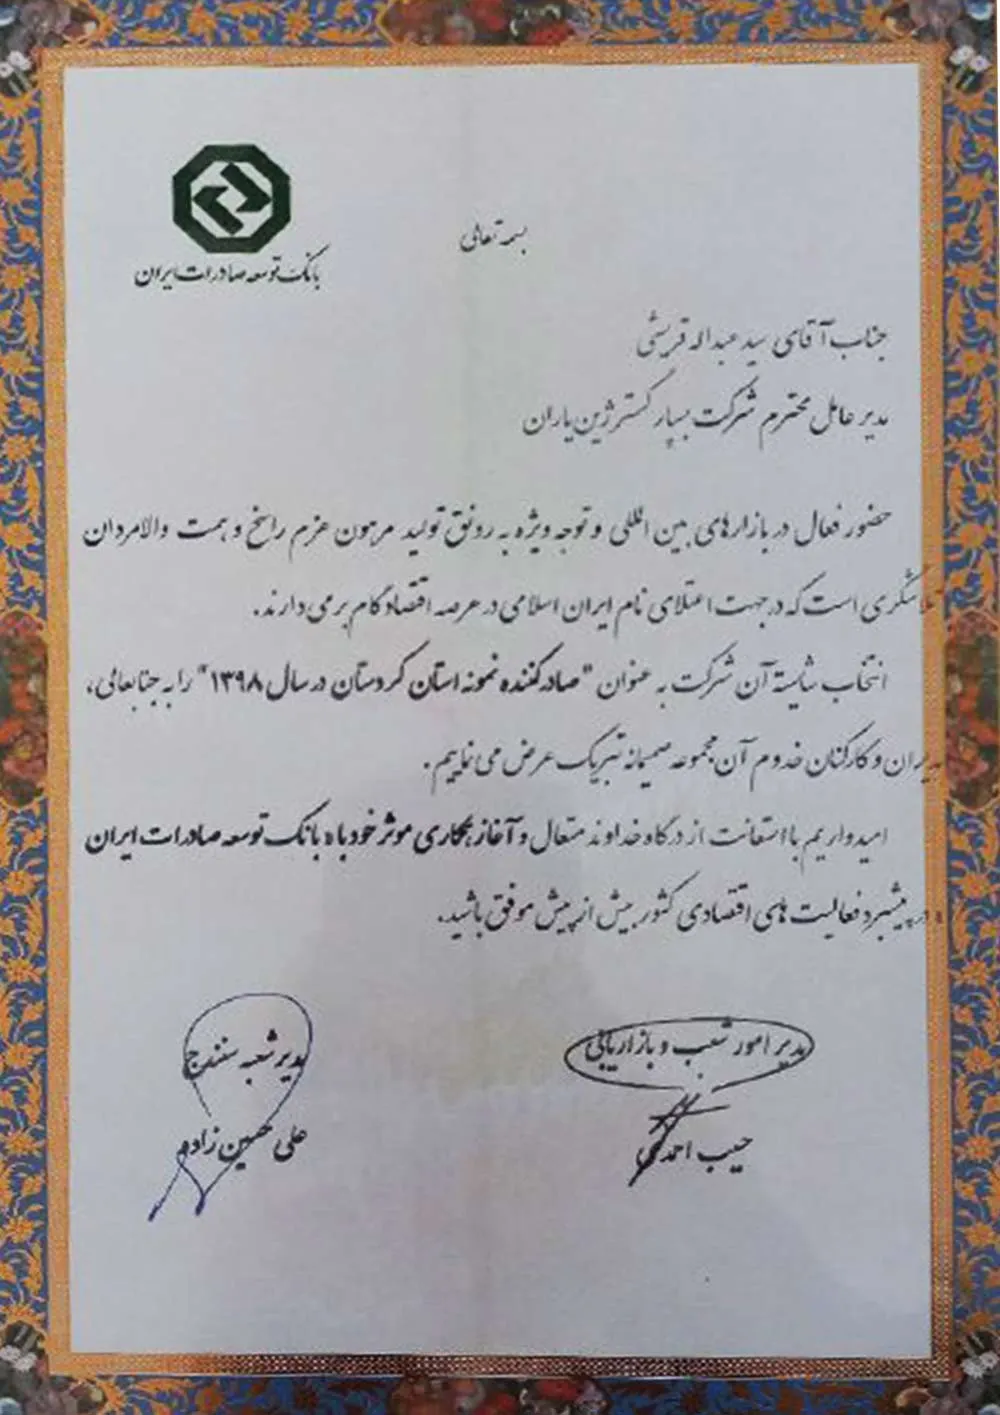 بانک توسعه صادرات ایران
بسمه تعالی
جناب آقای سید عبداله قریشی
مدیر عامل محترم شرکت بسپار گستر ژین یاران
حضور فعال در بازارهای بین المللی و توجه ویژه به رونق تولید مرهون عزم راسخ و همت والامردان
تلاشگری است که در جهت اعتلای نام ایران اسلامی در عرصه اقتصاد گام بر می دارند.
انتخاب شایسته آن شرکت به عنوان "صادرکننده نمونه استان کردستان در سال ۱۳۹۸" را به جنابعالی،
مدیران و کارکنان خدوم آن مجموعه صمیمانه تبریک عرض می نماییم.
امیدواریم با استعانت از درگاه خداوند متعال و آغاز همکاری موثر خود با بانک توسعه صادرات ایران
در پیشبرد فعالیت های اقتصادی کشور بیش از پیش موفق باشید.
مدیر امور شعب و بازاریابی
مدیر شعبه سنندج
حبیب احمدی
علی حسین زاده